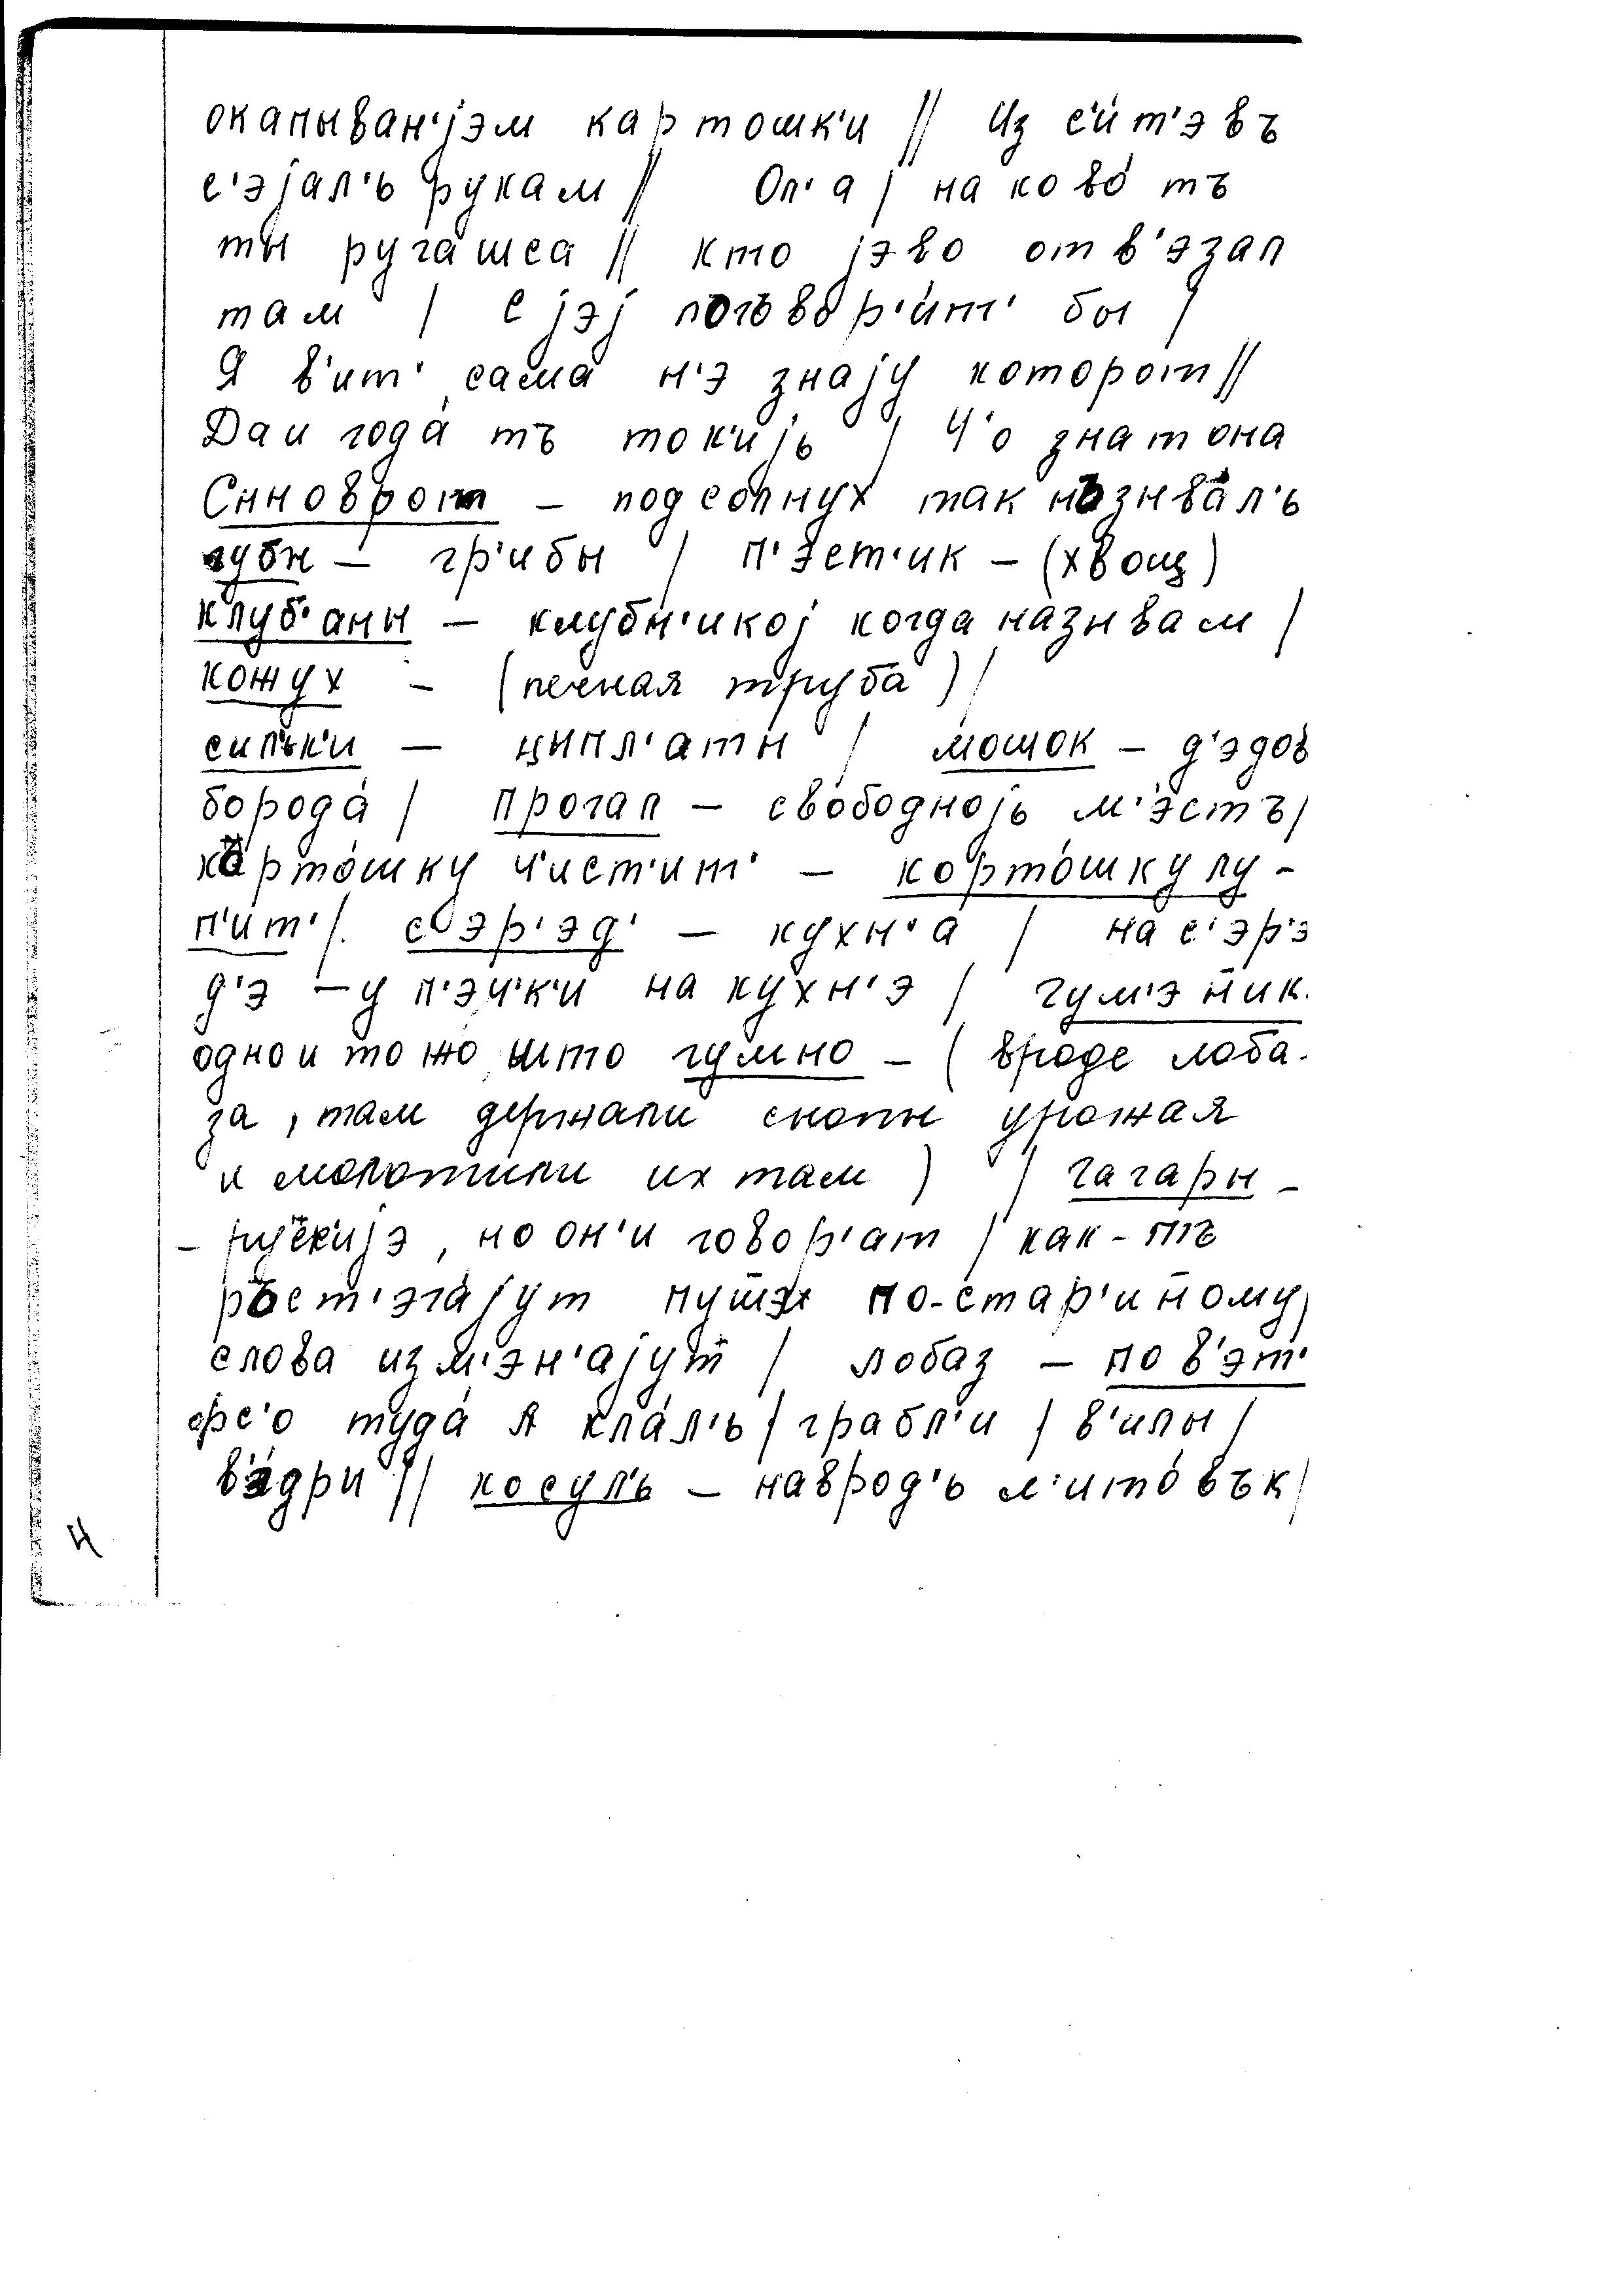 окапыван'јэм картошк'и // Из с'и́т'эвъ
с'эјал'ь рукам // Ол'а / на ково́ тъ
ты руга́шса // кто јэво отв'эзал
там / С јэј погъвор'и́т' бы /
Я в'ит' сама́ н'э знају которот //
Да и года́ тъ ток'ијь / Ч'о знат она
Сыноврот – подсолнух так нъзыва́л'ь
губы – гр'ибы / п'эст'ик – (хвощ)
клуб'аны – клубн'икој когда называм /
кожух – (печная труба) /
сил'ьк'и – цыпл'аты / мошок – д'эдов
борода́ / прогал – свободнојь м'эстъ /
карто́шку ч'ист'ит' – корто́шку лу-
п'ит' /. сэр'эд' – кухн'а / на с'эр'э
д'э – у п'эч'к'и на кухн'э / гум'эн̄ик.
одно и то жо што гумно – (вроде лоба-
за, там держали снопы урожая
и молотили их там) / гагары –
– рус̄к'ијэ, но он'и говор'ат / как-тъ
ръст'эга́јут пушэ по-стар'ин̄ому /
слова изм'эн'ајут̄ / лобаз – пов'эт'
фс'о туда́ кла́л'ь / грабл'и / в'илы /
в'э́дри // косул'ь – наврод'ь л'ито́вък /
4